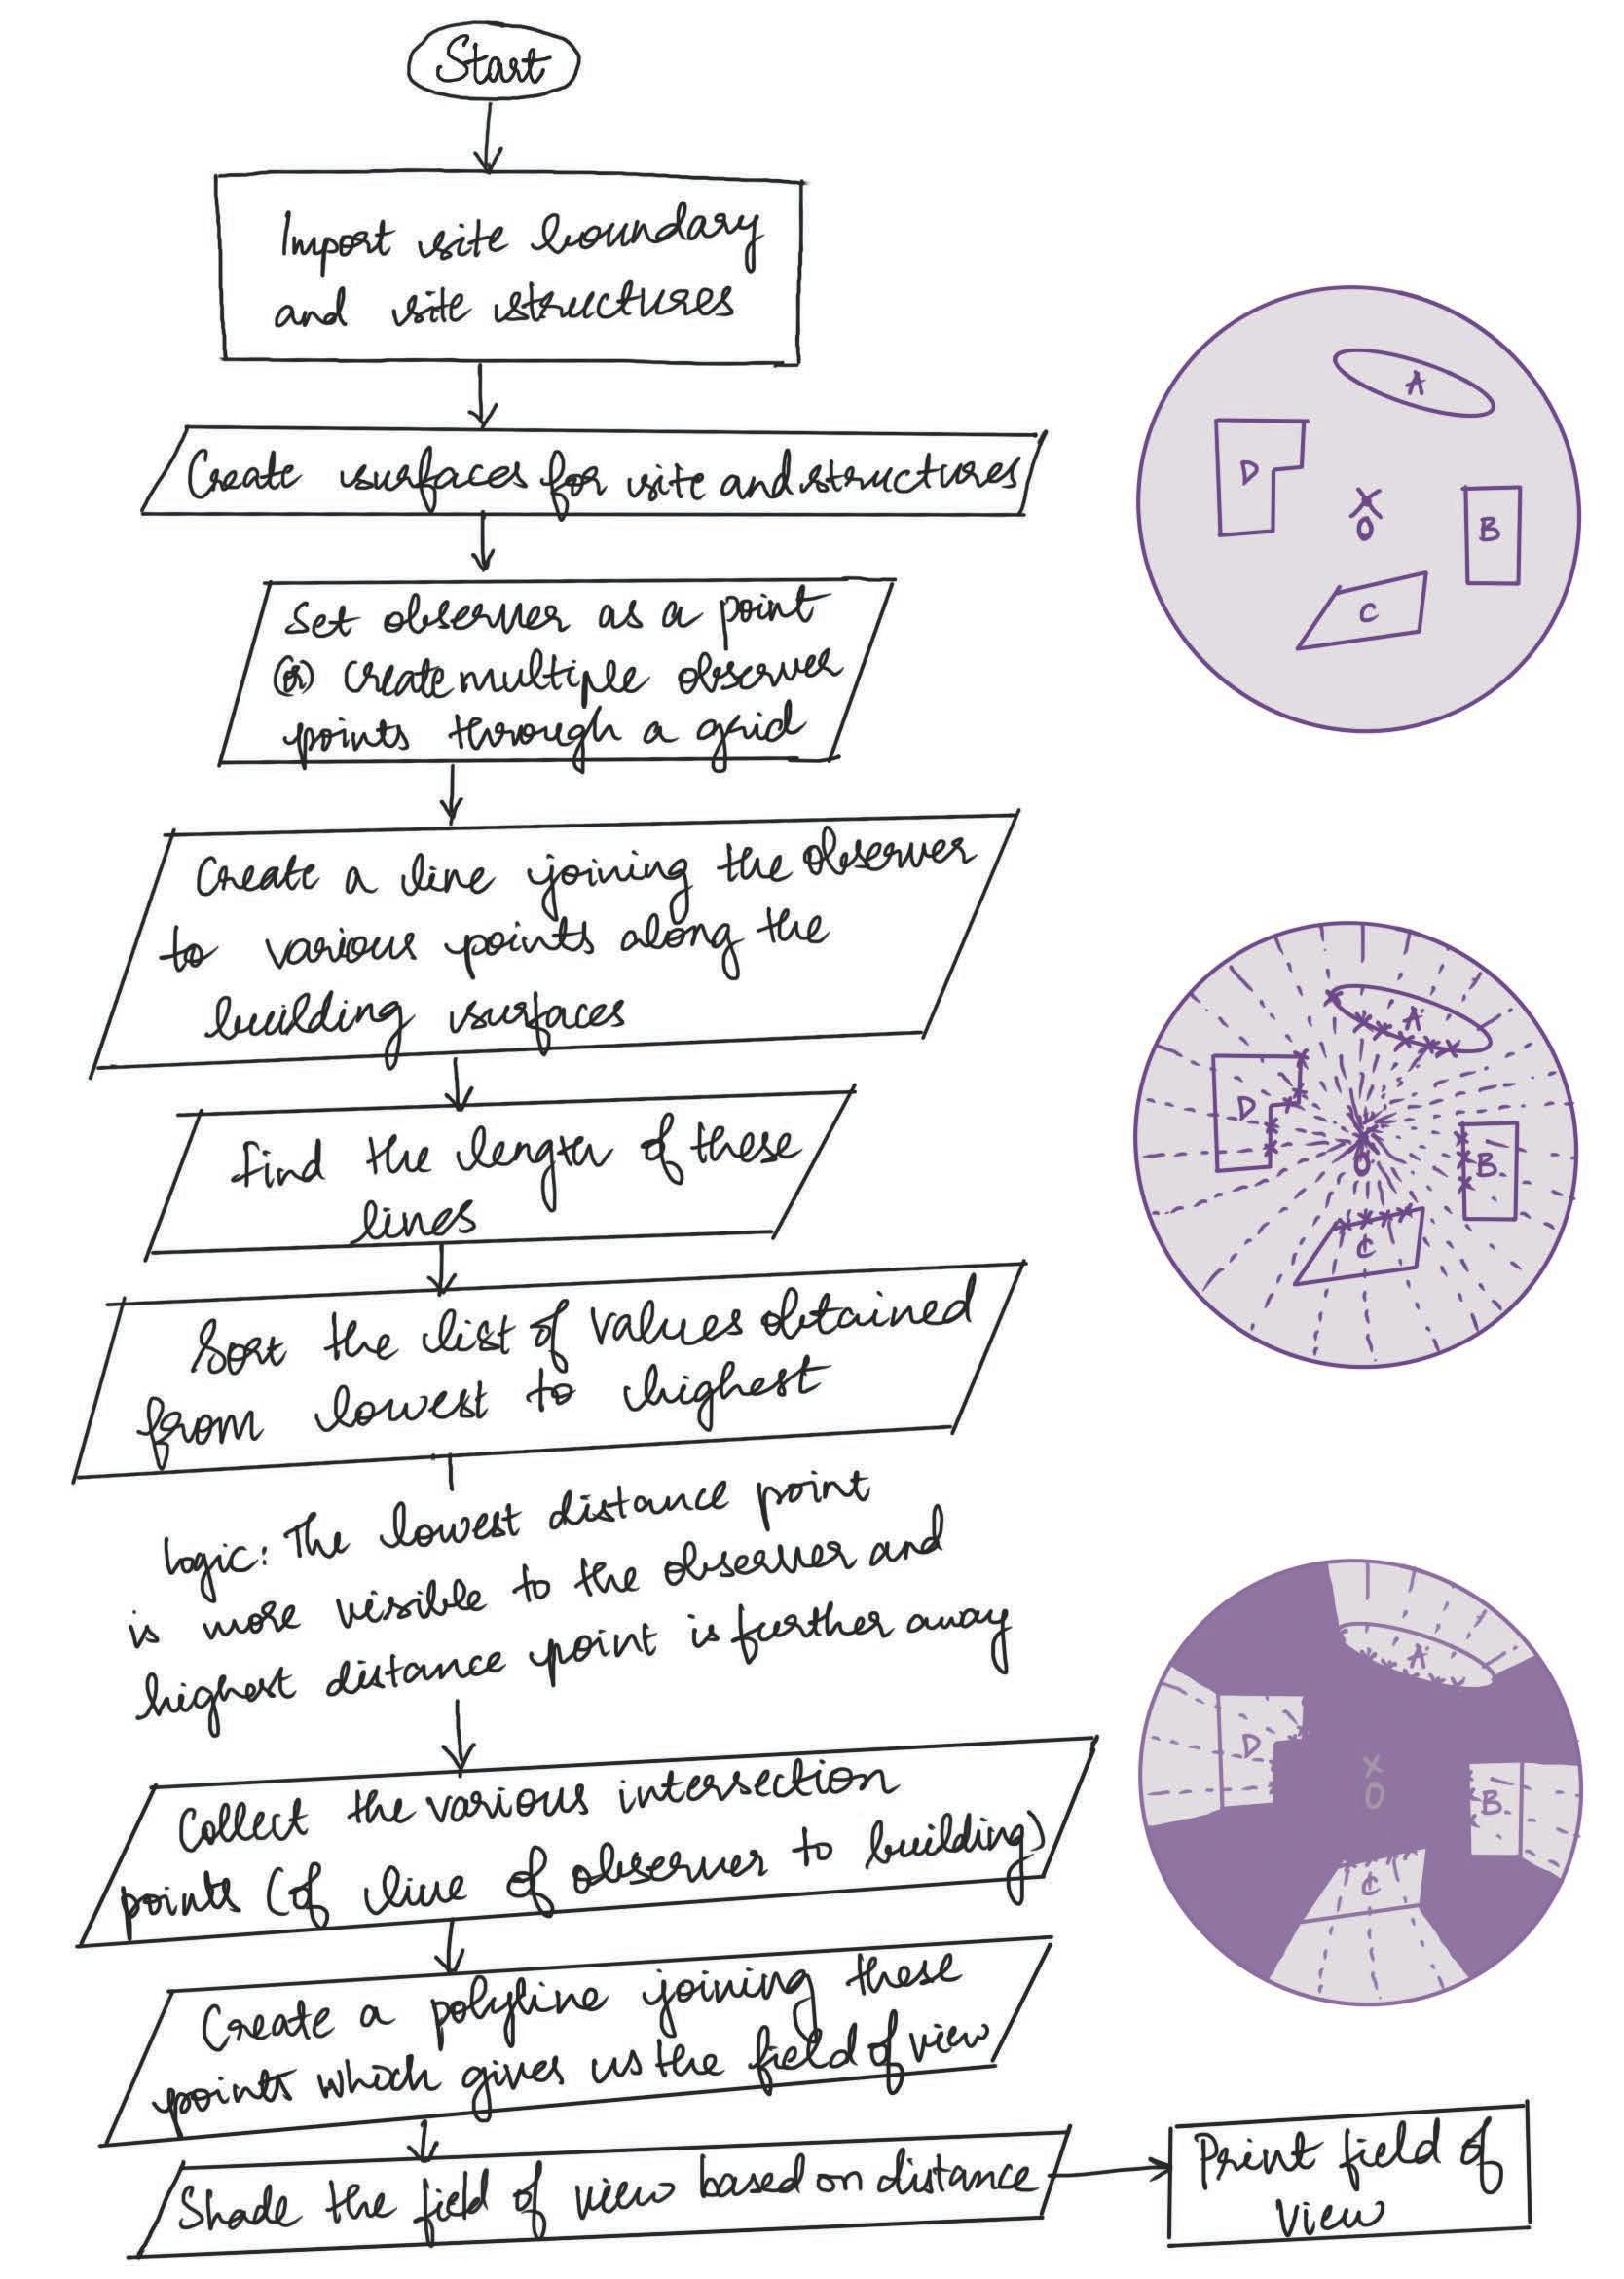 Start
Import site boundary
and site structures
Create surfaces for site and structures
Set observer as a point
(or) create multiple observer
points through a grid
Create a line joining the observer
to various points along the
building surfaces
find the length of these
lines
Sort the list of values obtained
from lowest to highest
logic: The lowest distance point
is more visible to the observer and
highest distance point is further away
Collect the various intersection
points (of line of observer to building)
Create a polyline joining these
points which gives us the field of view
Shade the field of view based on distance
Print field of
view
A
D
X
O
B
C
A
D
O
B
C
A
D
X
O
B
C